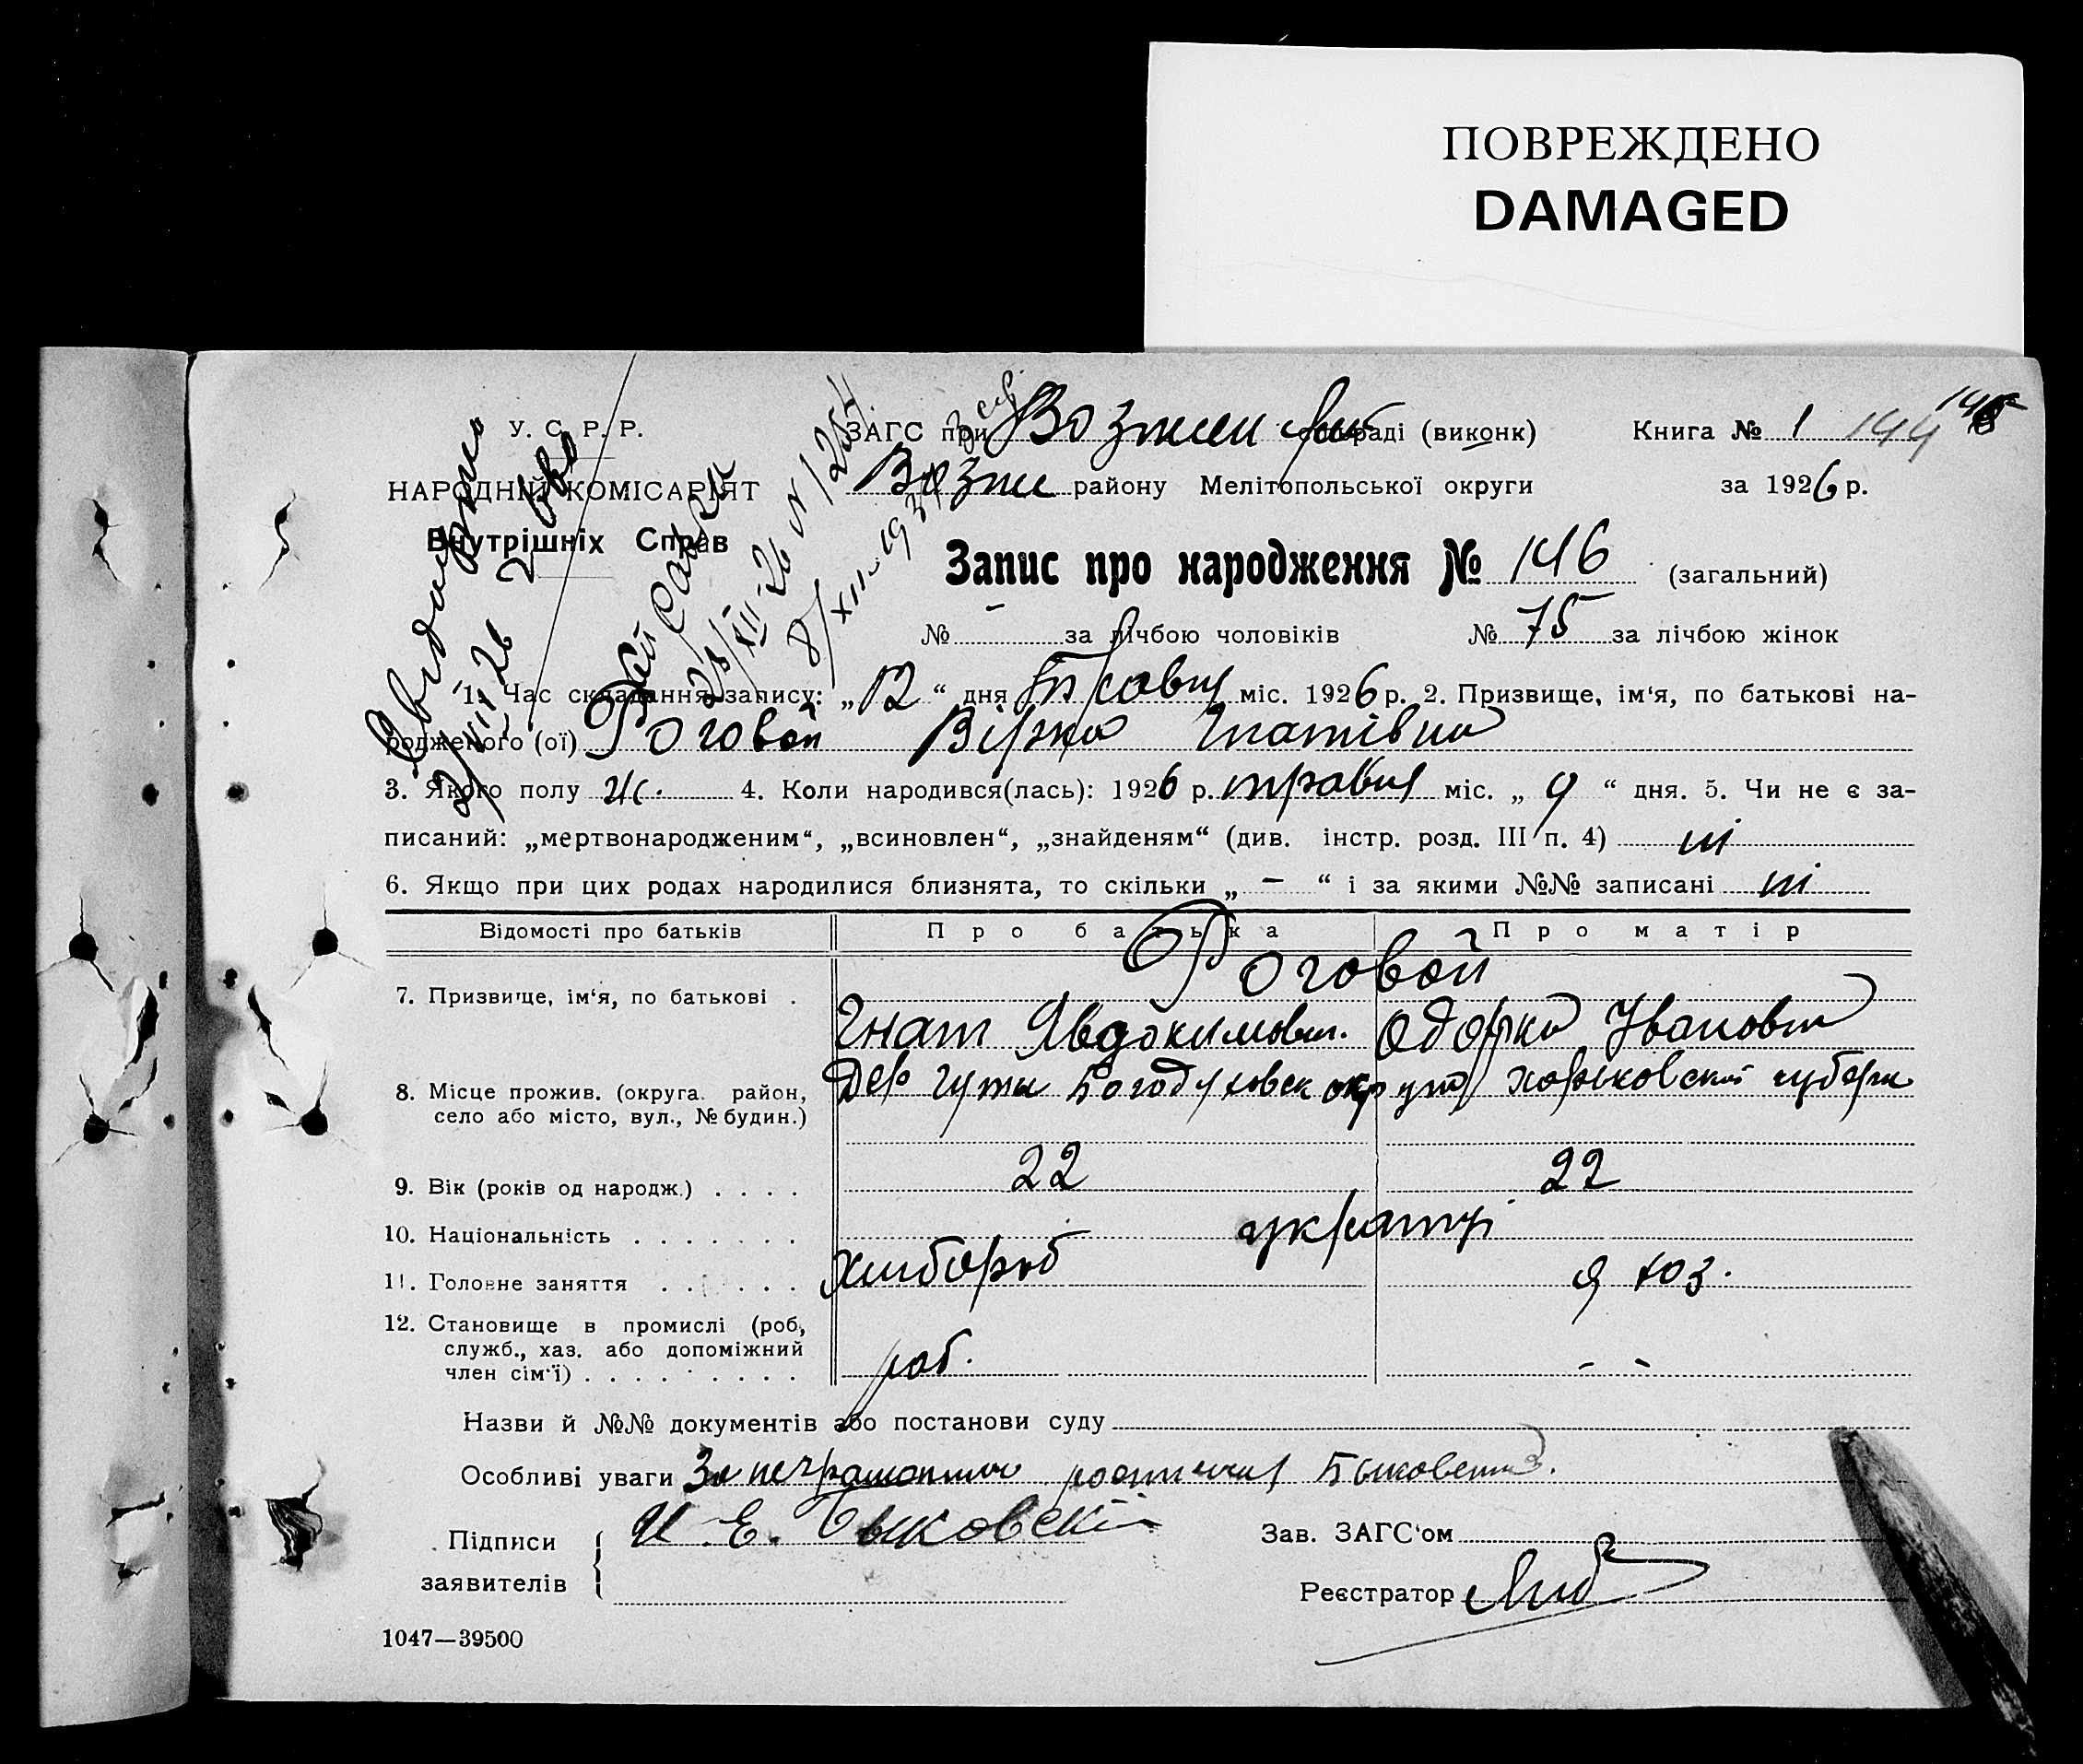 ПОВРЕЖДЕНО
DAMAGED
У. С. Р. Р.
НАРОДНІЙ КОМІСАРІЯТ
Внутрішніх Справ
ЗАГС при раді (виконк)
району Мелітопольської округи
Книга № 1 144
за 1926 р.
Запис про народження № 146 (загальний)
№ – за лічбою чоловіків № 75 за лічбою жінок
1. Час складання запису: „12“ дня міс. 1926 р. 2. Призвище, ім‘я, по батькові на-
родженого (ої) Роговой Вірка Гнатівна
3. Якого полу ж. 4. Коли народився(лась): 1926 р. травня міс. „ 9 “ дня. 5. Чи не є за-
писаний: „мертвонародженим“, „всиновлен“, „знайденям“ (див. інстр. розд. III п. 4) ні
6. Якщо при цих родах народилися близнята, то скільки „ – “ і за якими №№ записані ні
Відомості про батьків Про батька Про матір
Роговой
7. Призвище, ім‘я, по батькові .
Гнат Явдокимович. Одарка Івановна
8. Місце прожив. (округа. район,
село або місто, вул., № будин.)
Дер гути Богодуховск округа харьковской губерни
9. Вік (років од народж.) . . . . 22 22
10. Національність . . . . . . . українці
11. Головне заняття . . . . . . хлібороб
12. Становище в промислі (роб,
служб., хаз. або допоміжний
член сім‘ї) . . . . . . . . . роб. - -
Назви й №№ документів або постанови суду
Особливі уваги За неграмотного
Підписи
заявителів
И. Е. Быковский
Зав. ЗАГС‘ом
Реєстратор
1047—39500